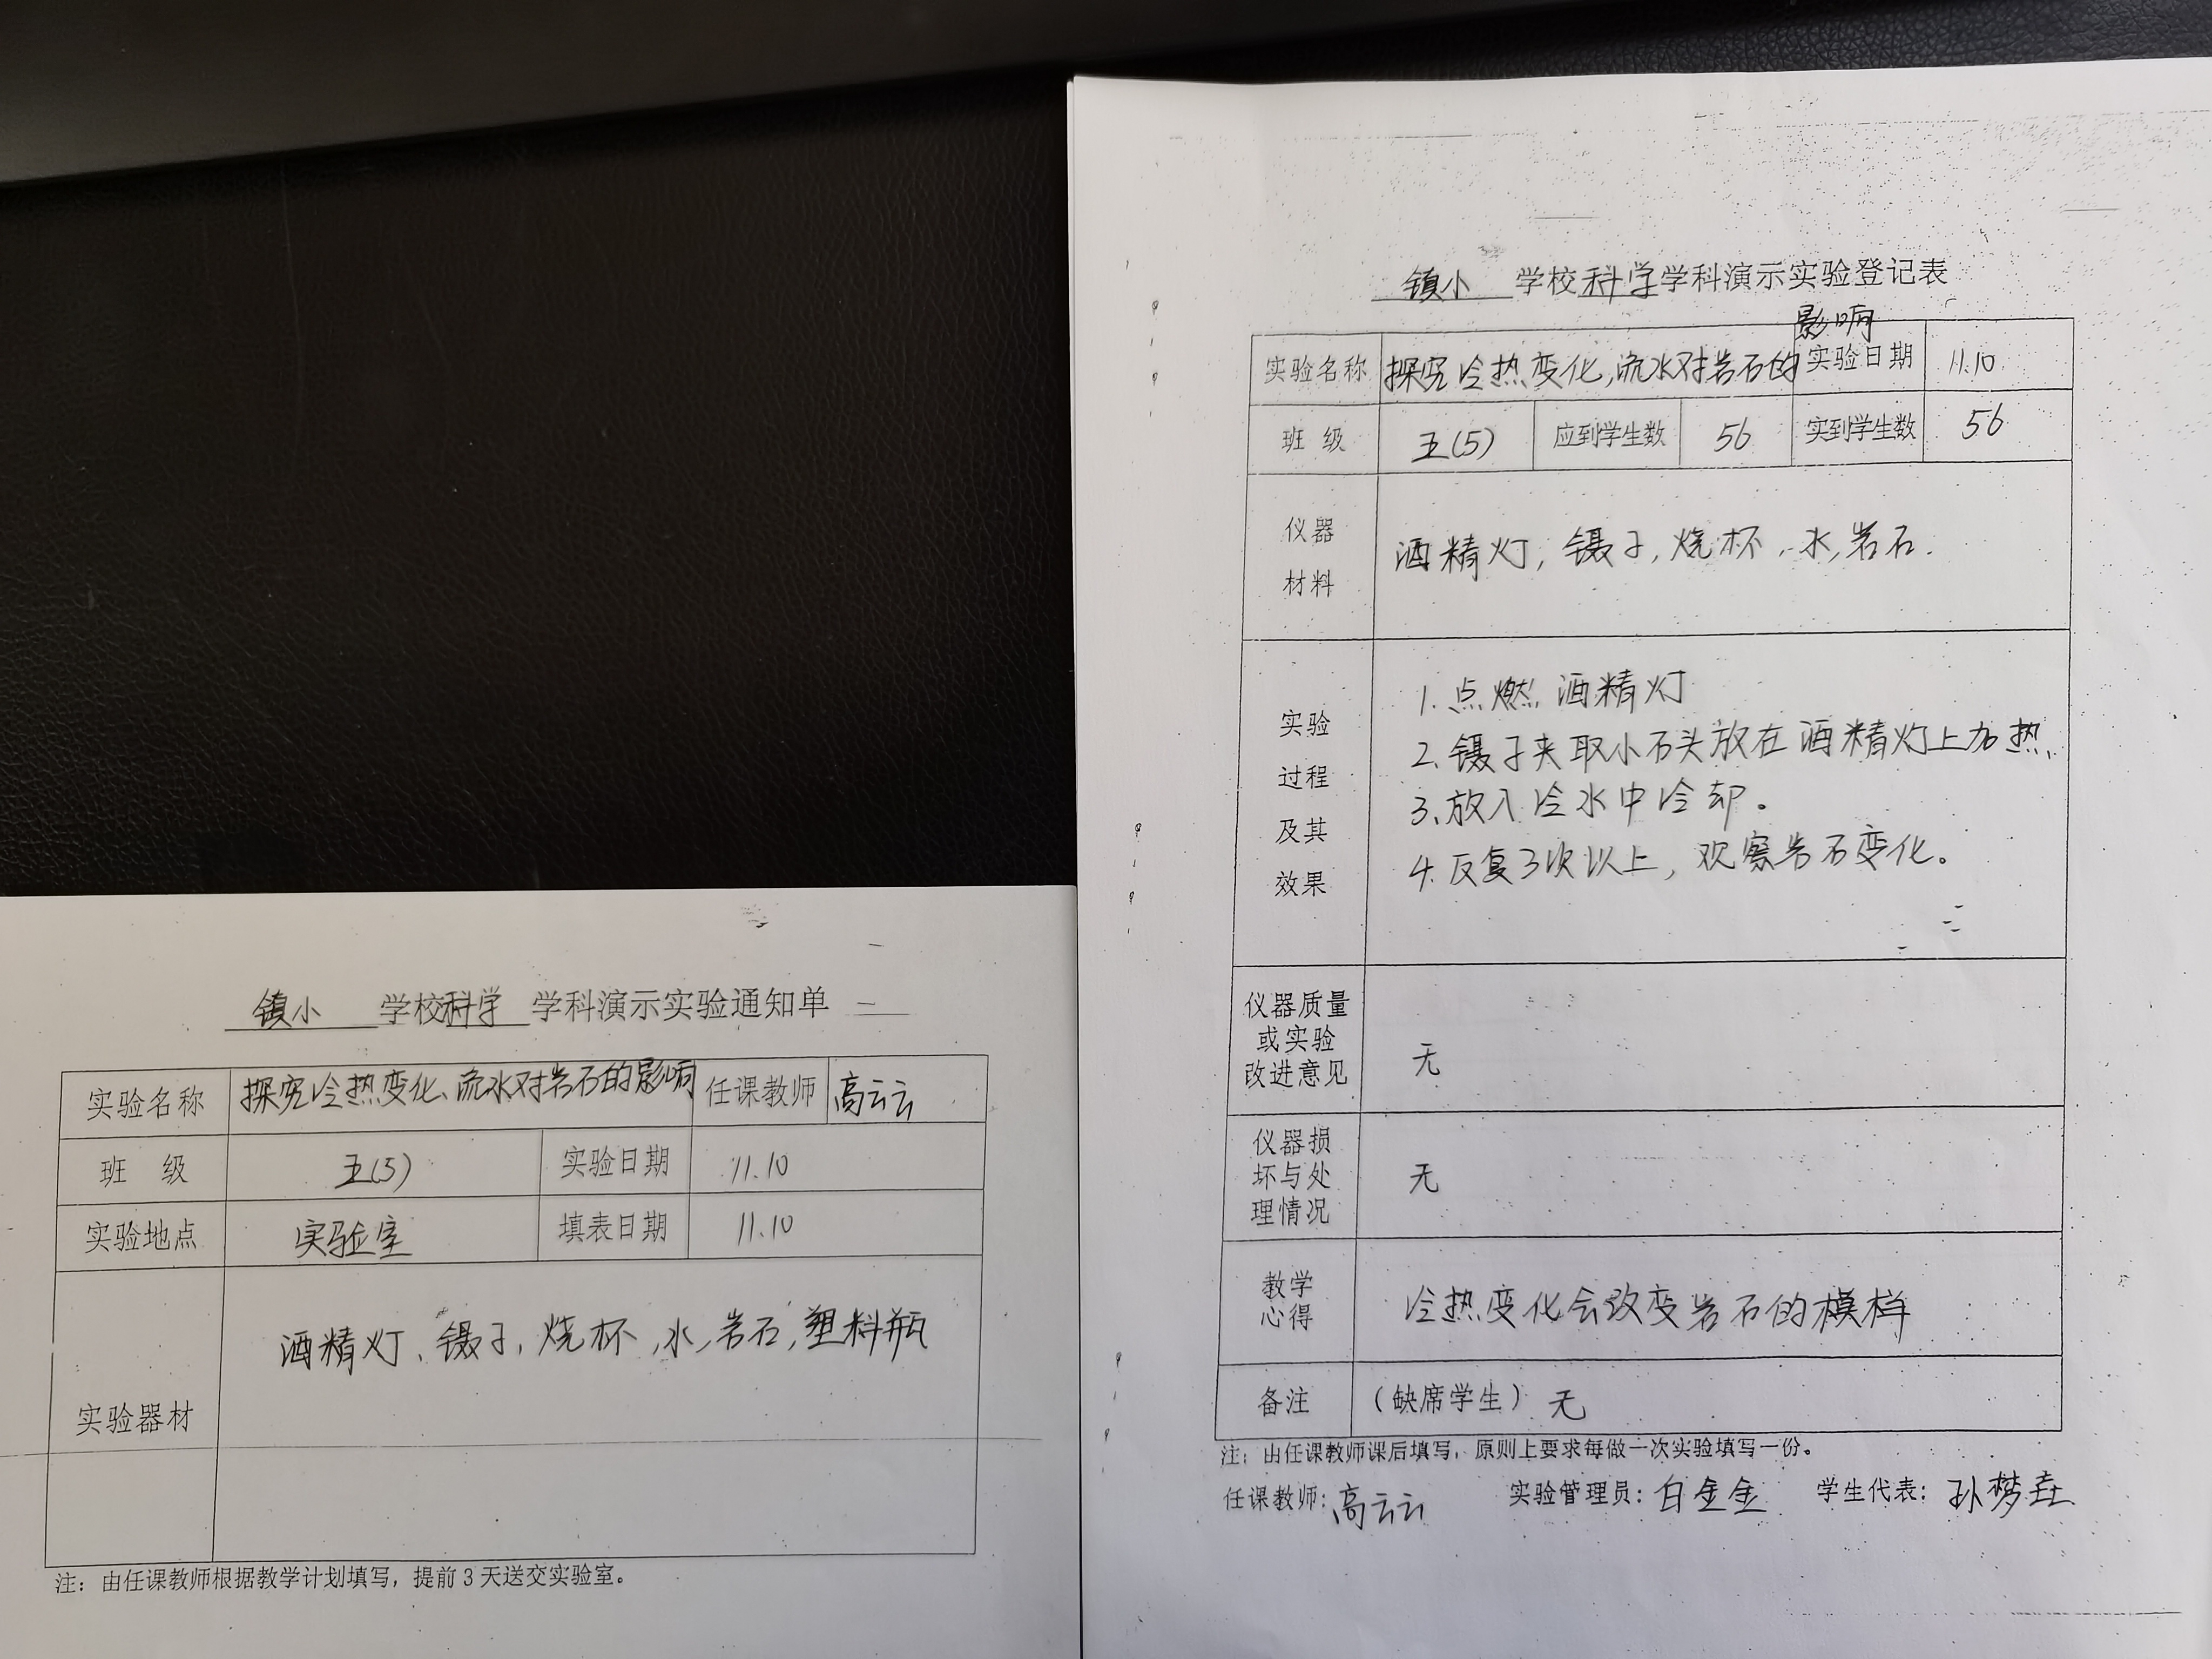 镇小 学校科学学科演示实验登记表
影响
实验名称 探究冷热变化,流水对岩石的 实验日期 11.10
班 级 五(5) 应到学生数 56 实到学生数 56
仪器
材料
酒精灯,镊子,烧杯,水,岩石.
实验
过程
及其
效果
1.点燃酒精灯
2.镊子夹取小石头放在酒精灯上加热.
3.放入冷水中冷却。
4.反复3次以上,观察岩石变化。
仪器质量
或实验
改进意见
无
仪器损
坏与处
理情况
无
教学
心得
冷热变化会改变岩石的模样
备注 (缺席学生) 无
注:由任课教师课后填写,原则上要求每做一次实验填写一份。
任课教师:高云云 实验管理员:白金金 学生代表:孙梦垚
镇小 学校科学 学科演示实验通知单
实验名称 探究冷热变化、流水对岩石的影响 任课教师 高云云
班 级 五(5) 实验日期 11.10
实验地点 实验室 填表日期 11.10
实验器材
酒精灯、镊子,烧杯,水,岩石,塑料瓶
注:由任课教师根据教学计划填写,提前3天送交实验室。